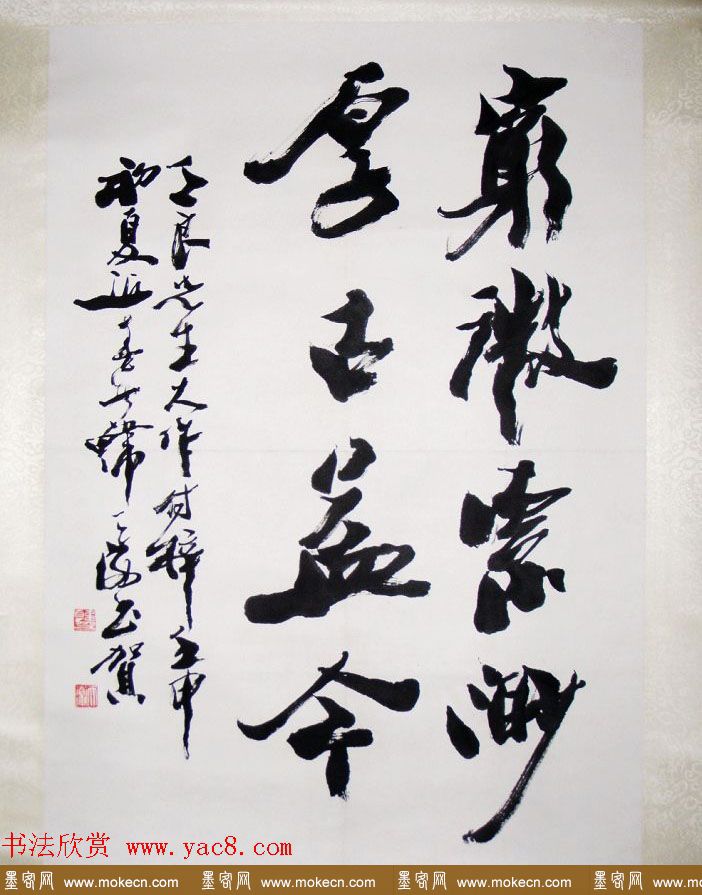 穷微索渺
厚古益今
良先生大作付梓壬申
初夏近
书贺
书法欣赏 www.yac8.com
墨客网 www.mokecn.com 墨客网 www.mokecn.com 墨客网 www.mokecn.com 墨客网